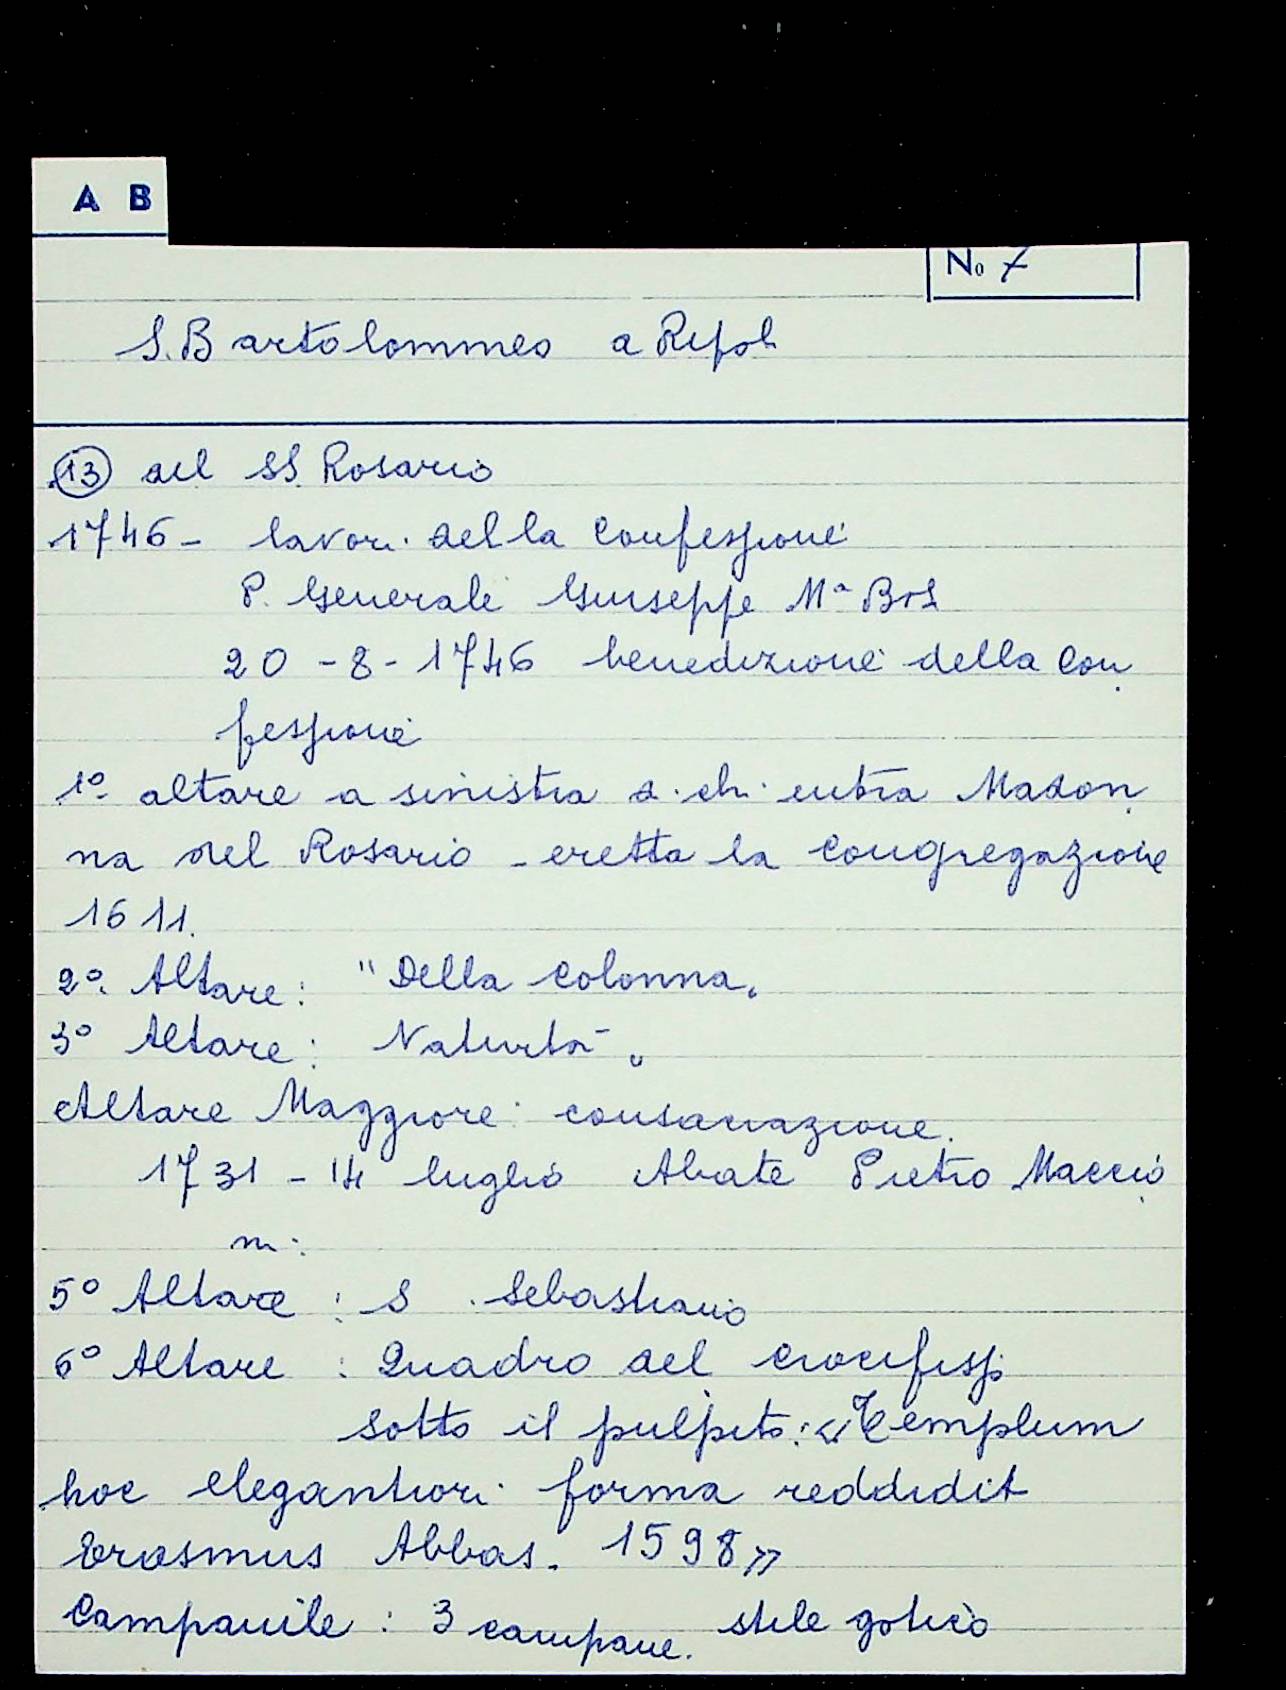 A B
No 7
S. Bartolommeo a Ripoli
13 del SS. Rosario
1746 - lavori della Confessione
P. Generale Giuseppe Mª
20 - 8 - 1746 benedizione della Con
fessione
1º altare a sinistra di chi entra Madon
na del Rosario - eretta la Congregazione
1611.
2º. Altare: "Della Colonna„
3º Altare: Natività „
Altare Maggiore: consacrazione.
1731 - 14 luglio Abate Pietro Maccio
ni:
5º Altare : S. Sebastiano
6º Altare : Quadro del Crocifisso
sotto il pulpito: «Templum
hoc elegantiori forma reddidit
Erasmus Abbas. 1598»
Campanile : 3 campane. stile gotico